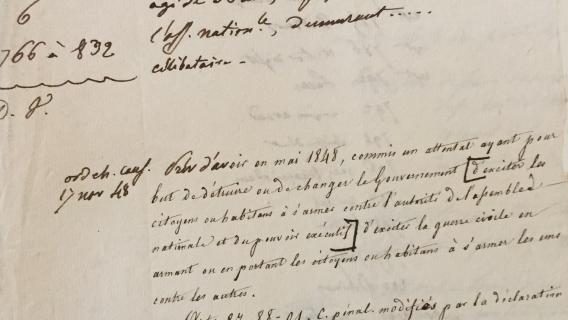 6
l'ass. nation.le, demeurant.....
766 à 832
célibataire.
D. f.
ord. ch. cons.
17 nov 48
Prév d'avoir en mai 1848, commis un attentat ayant pour
but de détruire ou de changer le Gouvernement [d'exciter les
citoyens ou habitans à s'armer contre l'autorité de l'assemblée
nationale et du pouvoir exécutif] d'exciter la guerre civile en
armant ou en portant les citoyens ou habitans à s'armer les uns
contre les autres.
87. 88 - 91. C. pénal. modifiés par la déclaration